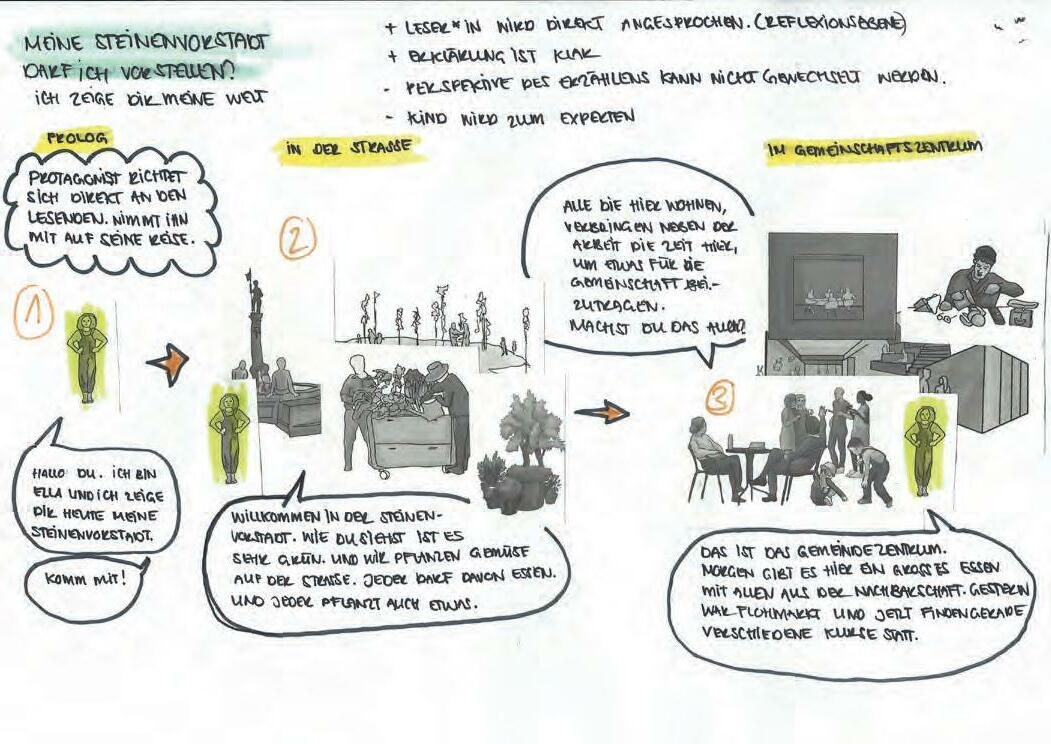 MEINE STEINENVORSTADT
DARF ICH VORSTELLEN?
ICH ZEIGE DIR MEINE WELT
+ LESER*IN WIRD DIREKT ANGESPROCHEN. (REFLEXIONSEBENE)
+ ERKLÄRUNG IST KLAR
- PERSPEKTIVE DES ERZÄHLENS KANN NICHT GEWECHSELT WERDEN.
- KIND WIRD ZUM EXPERTEN
PROLOG
PROTAGONIST RICHTET
SICH DIREKT AN DEN
LESENDEN. NIMMT IHN
MIT AUF SEINE REISE.
1
HALLO DU. ICH BIN
ELLA UND ICH ZEIGE
DIR HEUTE MEINE
STEINENVORSTADT.
KOMM MIT!
IN DER STRASSE
2
WILLKOMMEN IN DER STEINEN-
VORSTADT. WIE DU SIEHST IST ES
SEHR GRÜN. UND WIR PFLANZEN GEMÜSE
AUF DER STRASSE. JEDER DARF DAVON ESSEN.
UND JEDER PFLANZT AUCH ETWAS.
IM GEMEINSCHAFTSZENTRUM
ALLE DIE HIER WOHNEN,
VERBRINGEN NEBEN DER
ARBEIT DIE ZEIT HIER,
UM ETWAS FÜR DIE
GEMEINSCHAFT BEI-
ZUTRAGEN.
MACHST DU DAS AUCH?
3
DAS IST DAS GEMEINDEZENTRUM.
MORGEN GIBT ES HIER EIN GROSSES ESSEN
MIT ALLEN AUS DER NACHBARSCHAFT. GESTERN
WAR FLOHMARKT UND JETZT FINDEN GERADE
VERSCHIEDENE KURSE STATT.